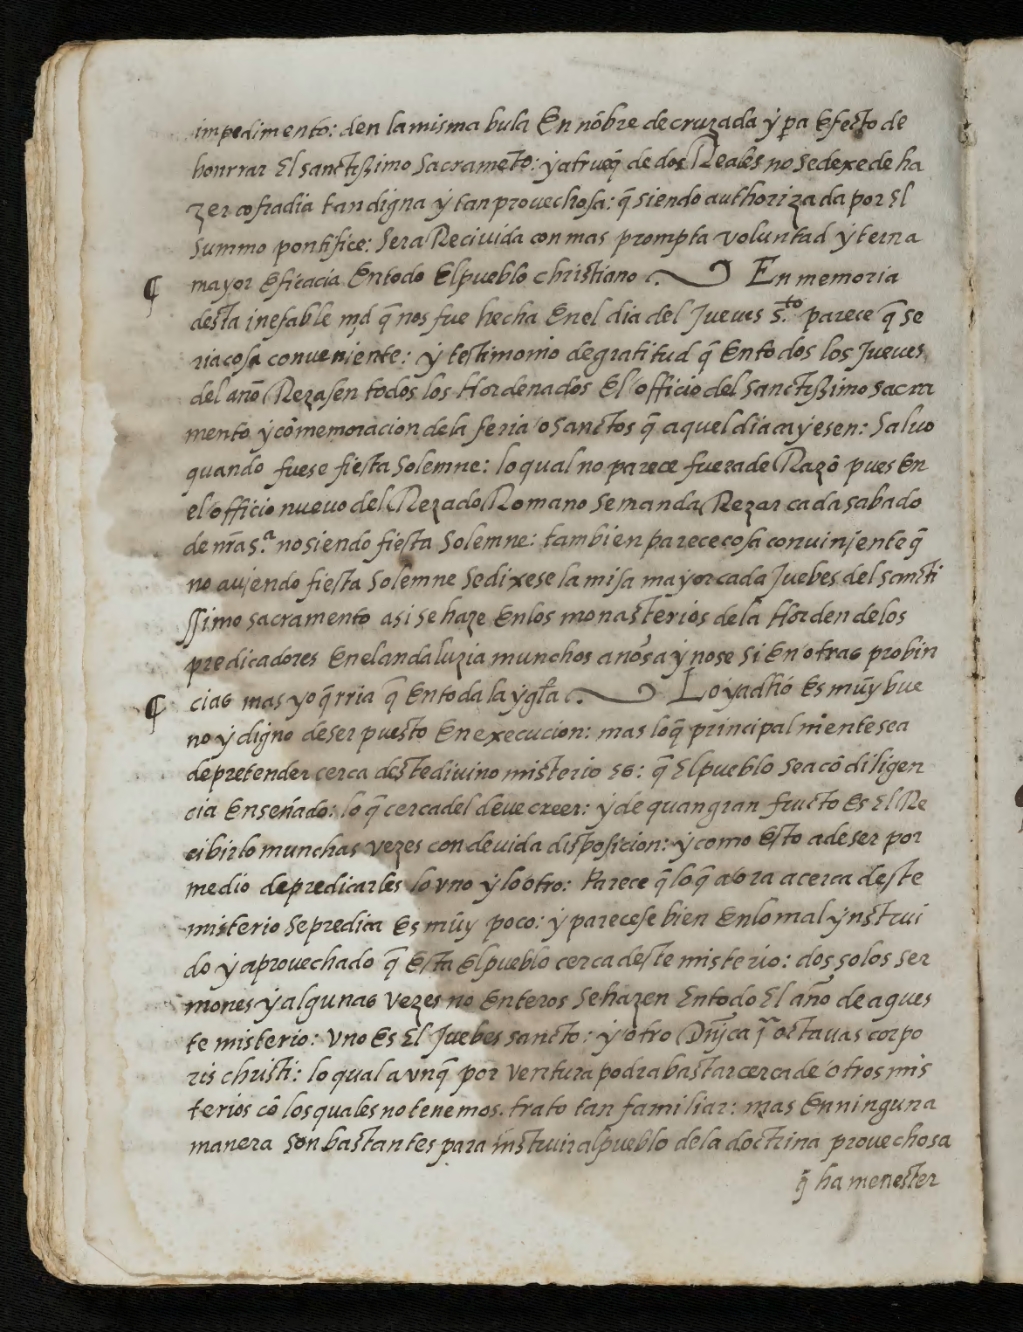 impedimento: den la misma bula En nõbre de cruzada ÿ pa Efecto de
honrrar El sanctissimo Sacrameto: ÿ atrueq̃ de dos Reales no se dexe de ha
zer cofradia tan digna ÿ tan prouechosa: q̃ siendo authorizada por El
Summo pontifice: Sera Reciuida con mas prompta voluntad ÿ terna
mayor Eficacia En todo El pueblo christiano. En memoria
¶ desta inefable mrd q̃ nos fue hecha En el dia del Jueues s.to parece q̃ se
ria cosa conueniente: ÿ testimonio de gratitud q̃ En todos los Jueues
del año Rezasen todos los Hordenados El officio del sanctissimo sacra
mento ÿ cõmemoracion de la feria o sanctos q̃ aquel dia cayesen: Saluo
quando fuese fiesta Solemne: lo qual no parece fuera de Razõ pues En
el officio nueuo del Rezado Romano se manda Rezar cada sabado
de nra s.a no siendo fiesta Solemne: tambien parece cosa conuiniente q̃
no auiendo fiesta Solemne Se dixese la misa mayor cada Juebes del sancti
ssimo sacramento asi se haze En los monasterios de la Horden de los
predicadores En el andaluzia munchos años a ÿ no se si En otras probin
cias mas yo q̃rria q̃ En toda la ÿgła. Lo ya dho Es muÿ bue
¶ no ÿ digno de ser puesto En execucion: mas lo q̃ principalmente sea
de pretender cerca deste diuino misterio Es: q̃ El pueblo sea cõ diligen
cia Enseñado: lo q̃ cerca del deue creer: ÿ de quan gran fructo Es El Re
cibirlo munchas vezes con deuida disposicion: ÿ como Esto a de ser por
medio de predicarles lo vno ÿ lo otro: Parece q̃ lo q̃ aora acerca deste
misterio Se predica Es muÿ poco: ÿ parecese bien En lo mal ÿnstrui
do ÿ aprouechado q̃ Esta El pueblo cerca deste misterio: dos solos ser
mones ÿ algunas vezes no Enteros Se hazen En todo El año de aques
te misterio: vno Es El Juebes sancto: ÿ otro Dnÿca j.a octauas corpo
ris christi: lo qual avnq̃ por ventura podra bastar cerca de otros mis
terios cõ los quales no tenemos trato tan familiar: mas En ninguna
manera son bastantes para instruir al pueblo de la doctrina prouechosa
q̃ ha menester